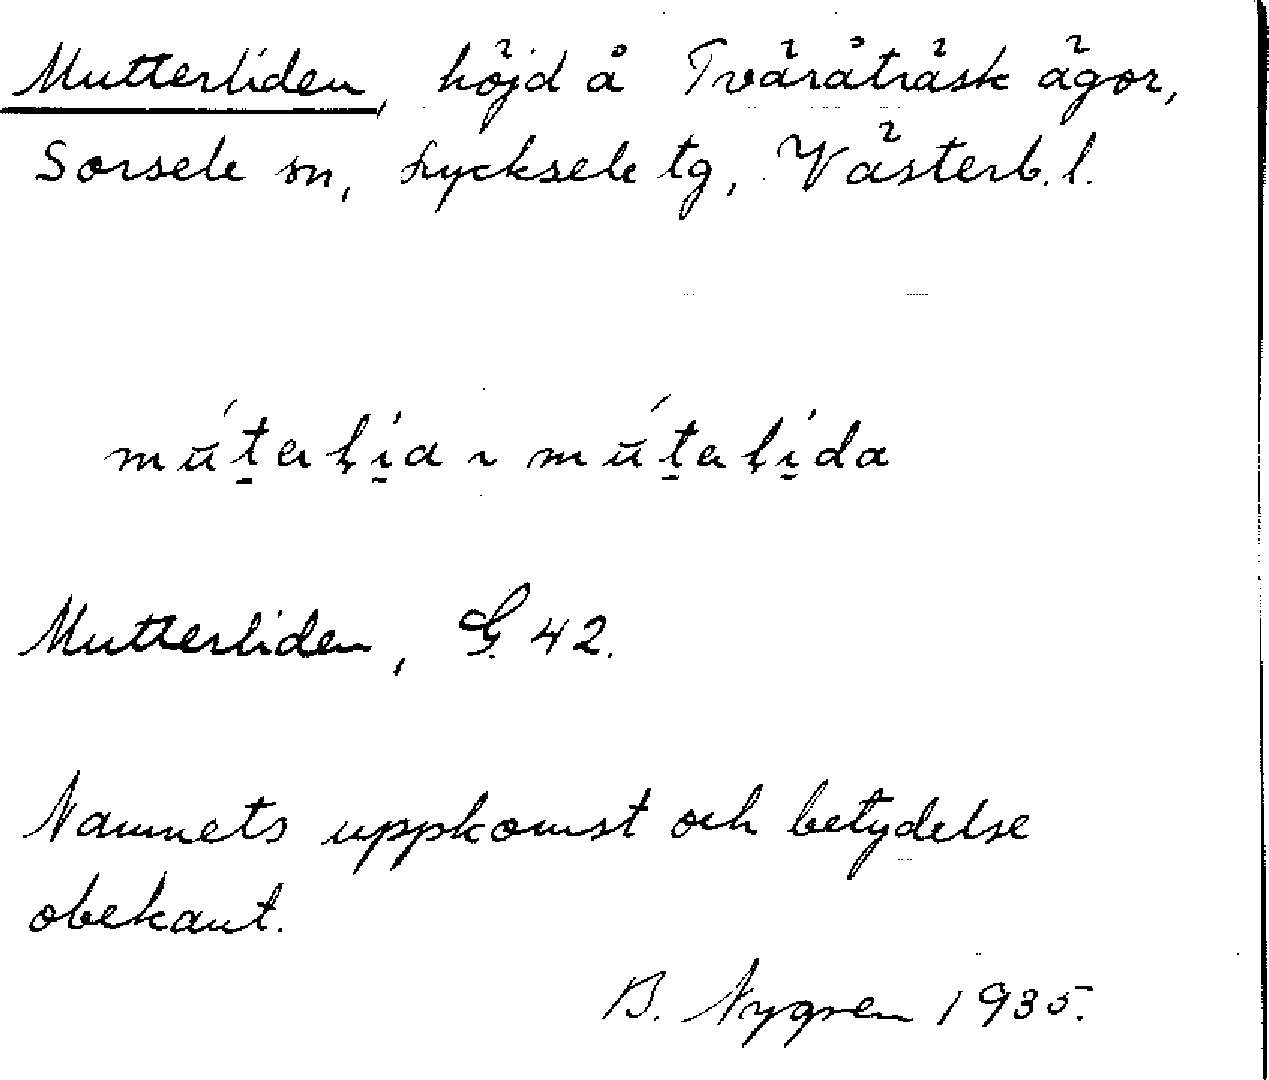 Mutterliden, höjd å Tväråträsk ägor,
Sorsele sn, Lycksele tg, Västerb. l.
Mutterliden, G 42.
Namnets uppkomst och betydelse
obekant.
B. Nygren 1935.